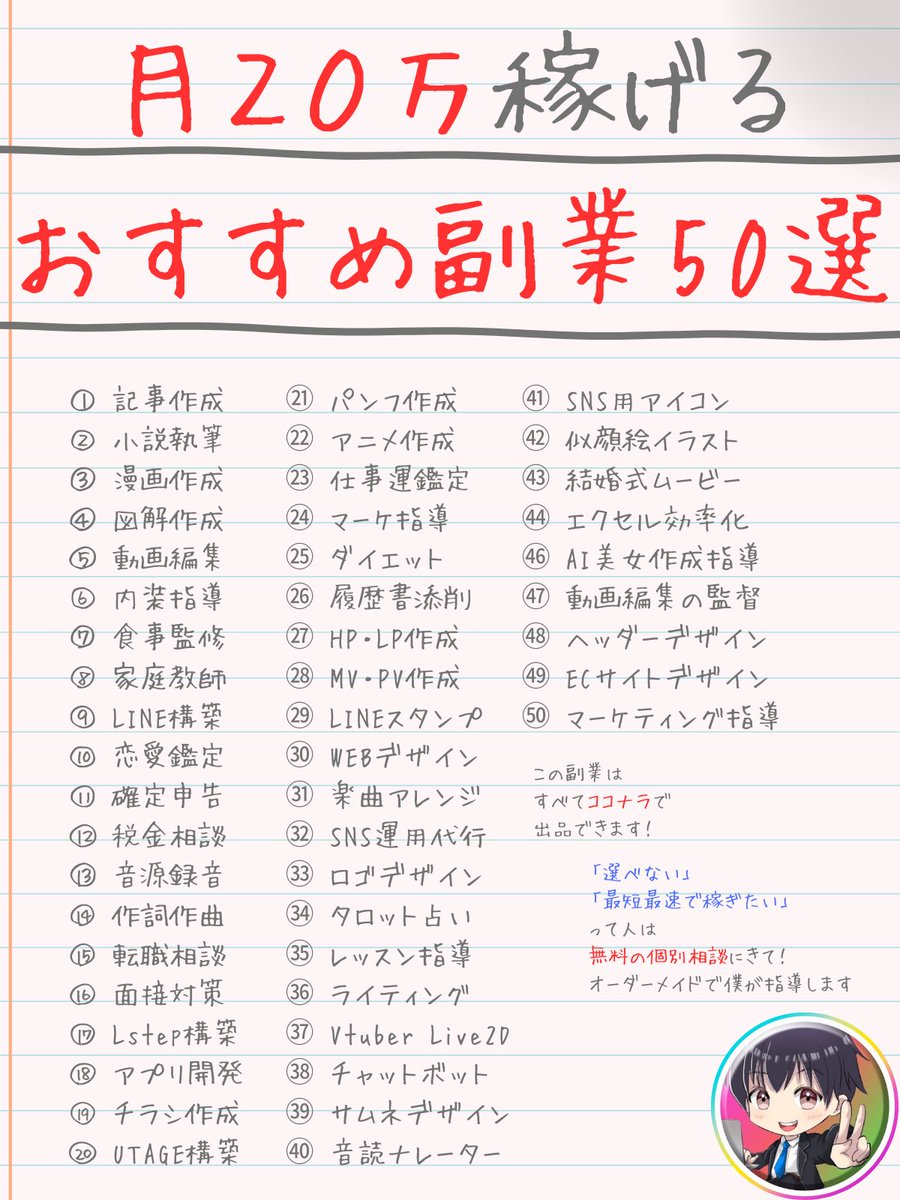 月20万稼げる
おすすめ副業50選
① 記事作成
② 小説執筆
③ 漫画作成
④ 図解作成
⑤ 動画編集
⑥ 内装指導
⑦ 食事監修
⑧ 家庭教師
⑨ LINE構築
⑩ 恋愛鑑定
⑪ 確定申告
⑫ 税金相談
⑬ 音源録音
⑭ 作詞作曲
⑮ 転職相談
⑯ 面接対策
⑰ Lstep構築
⑱ アプリ開発
⑲ チラシ作成
⑳ UTAGE構築
㉑ パンフ作成
㉒ アニメ作成
㉓ 仕事運鑑定
㉔ マーケ指導
㉕ ダイエット
㉖ 履歴書添削
㉗ HP・LP作成
㉘ MV・PV作成
㉙ LINEスタンプ
㉚ WEBデザイン
㉛ 楽曲アレンジ
㉜ SNS運用代行
㉝ ロゴデザイン
㉞ タロット占い
㉟ レッスン指導
㊱ ライティング
㊲ Vtuber Live2D
㊳ チャットボット
㊴ サムネデザイン
㊵ 音読ナレーター
㊶ SNS用アイコン
㊷ 似顔絵イラスト
㊸ 結婚式ムービー
㊹ エクセル効率化
㊻ AI美女作成指導
㊼ 動画編集の監督
㊽ ヘッダーデザイン
㊾ ECサイトデザイン
㊿ マーケティング指導
この副業は
すべてココナラで
出品できます!
「選べない」
「最短最速で稼ぎたい」
って人は
無料の個別相談にきて!
オーダーメイドで僕が指導します